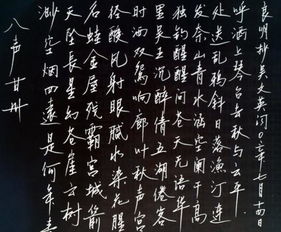 八声甘州
渺空烟四远是何年青
天坠长星幻苍崖云树
名娃金屋残霸宫城箭
径酸风射眼腻水染花腥
时靸双鸳响廊叶秋声宫
里吴王沉醉倩五湖倦客
独钓醒醒问苍天无语华
发奈山青水涵空阑干高
处送乱鸦斜日落渔汀连
呼酒上琴台去秋与云平
良明抄吴文英词 年七月十四日